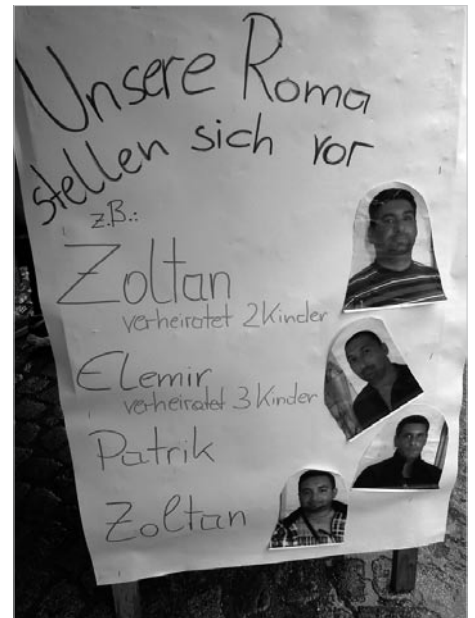 Unsere Roma
stellen sich vor
z.B.:
Zoltan
verheiratet 2 Kinder
Elemir
verheiratet 3 Kinder
Patrik
Zoltan